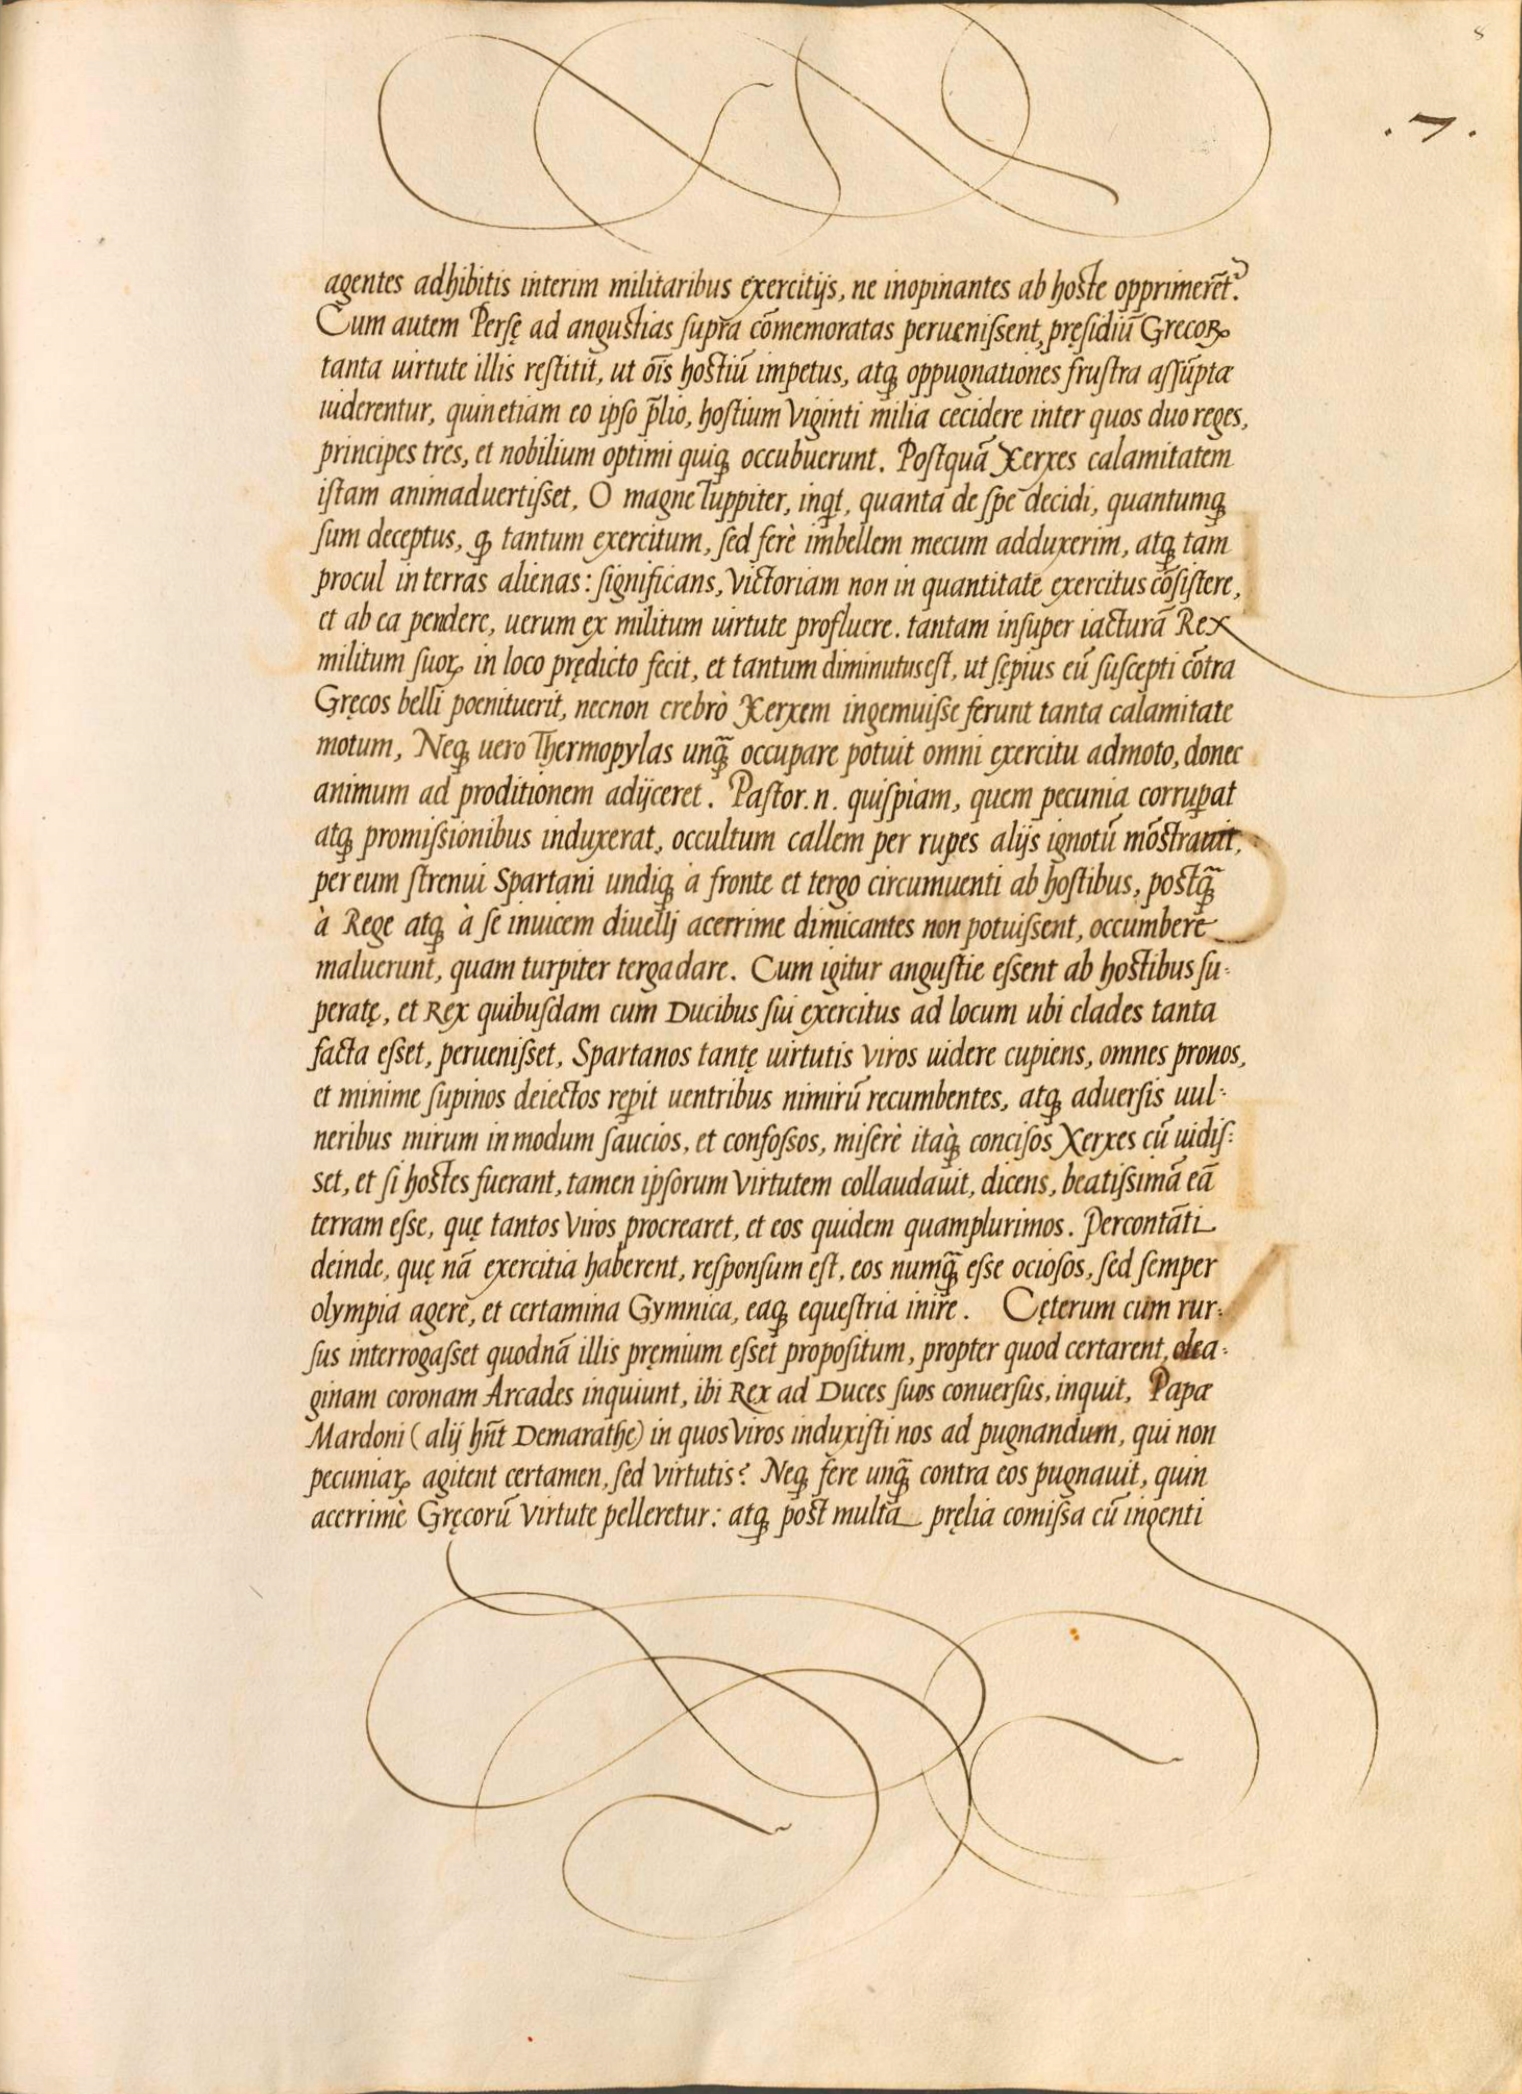 8
.7.
agentes adhibitis interim militaribus exercitijs, ne inopinantes ab hoste opprimerẽt.
Cum autem Persę ad angustias ſupra cõmemoratas perueniſsent, pręſidiũ Grecoꝝ
tanta uirtute illis reſtitit, ut oĩs hoſtiũ impetus, atqꝫ oppugnationes fruſtra aſſũptæ
uiderentur, quinetiam eo ipſo p̃lio, hoſtium Viginti milia cecidere inter quos duo reges,
principes tres, et nobilium optimi quiqꝫ occubuerunt. Poſtquã Xerxes calamitatem
iſtam animaduertiſset, O magne Iuppiter, inqt, quanta de ſpe decidi, quantumqꝫ
ſum deceptus, qꝫ tantum exercitum, ſed ferè imbellem mecum adduxerim, atqꝫ tam
procul in terras alienas: ſignificans, Victoriam non in quantitate exercitus cõſiſtere,
et ab ea pendere, uerum ex militum uirtute profluere. tantam inſuper iacturã Rex
militum ſuoꝝ in loco prędicto fecit, et tantum diminutus eſt, ut ſępius eũ ſuſcepti cõtra
Gręcos belli poenituerit, necnon crebrò Xerxem ingemuiſse ferunt tanta calamitate
motum, Neqꝫ uero Thermopylas unq̃ occupare potuit omni exercitu admoto, donec
animum ad proditionem adijceret. Paſtor .n. quiſpiam, quem pecunia corruꝑat
atqꝫ promiſsionibus induxerat, occultum callem per rupes alijs ignotũ mõſtrauit,
per eum ſtrenui Spartani undiqꝫ à fronte et tergo circumuenti ab hoſtibus, poſtq̃
à Rege atqꝫ à ſe inuicem diuelli acerrime dimicantes non potuiſsent, occumbere
maluerunt, quam turpiter terga dare. Cum igitur anguſtie eſsent ab hoſtibus ſu:
peratę, et Rex quibuſdam cum Ducibus ſui exercitus ad locum ubi clades tanta
facta eſset, perueniſset, Spartanos tantę uirtutis Viros uidere cupiens, omnes pronos,
et minime ſupinos deiectos reꝑit uentribus nimirũ recumbentes, atqꝫ aduerſis uul:
neribus mirum in modum ſaucios, et confoſsos, miſerè itaqꝫ conciſos Xerxes cũ uidiſ:
set, et ſi hoſtes fuerant, tamen ipſorum Virtutem collaudauit, dicens, beatiſsimã eã
terram eſse, quę tantos Viros procrearet, et eos quidem quamplurimos. Percontãti
deinde, quę nã exercitia haberent, reſponſum eſt, eos numq̃ eſse ocioſos, ſed ſemper
olympia agere, et certamina Gymnica, eaqꝫ equeſtria inire. Cęterum cum rur:
ſus interrogaſset quodnã illis pręmium eſset propoſitum, propter quod certarent, olea:
ginam coronam Arcades inquiunt, ibi Rex ad Duces ſuos conuerſus, inquit, Papæ
Mardoni (alij hñt Demarathe) in quos Viros induxiſti nos ad pugnandum, qui non
pecuniaꝝ agitent certamen, ſed Virtutis? Neqꝫ fere unq̃ contra eos pugnauit, quin
acerrimè Gręcorũ Virtute pelleretur: atqꝫ poſt multa pręlia comiſsa cũ ingenti